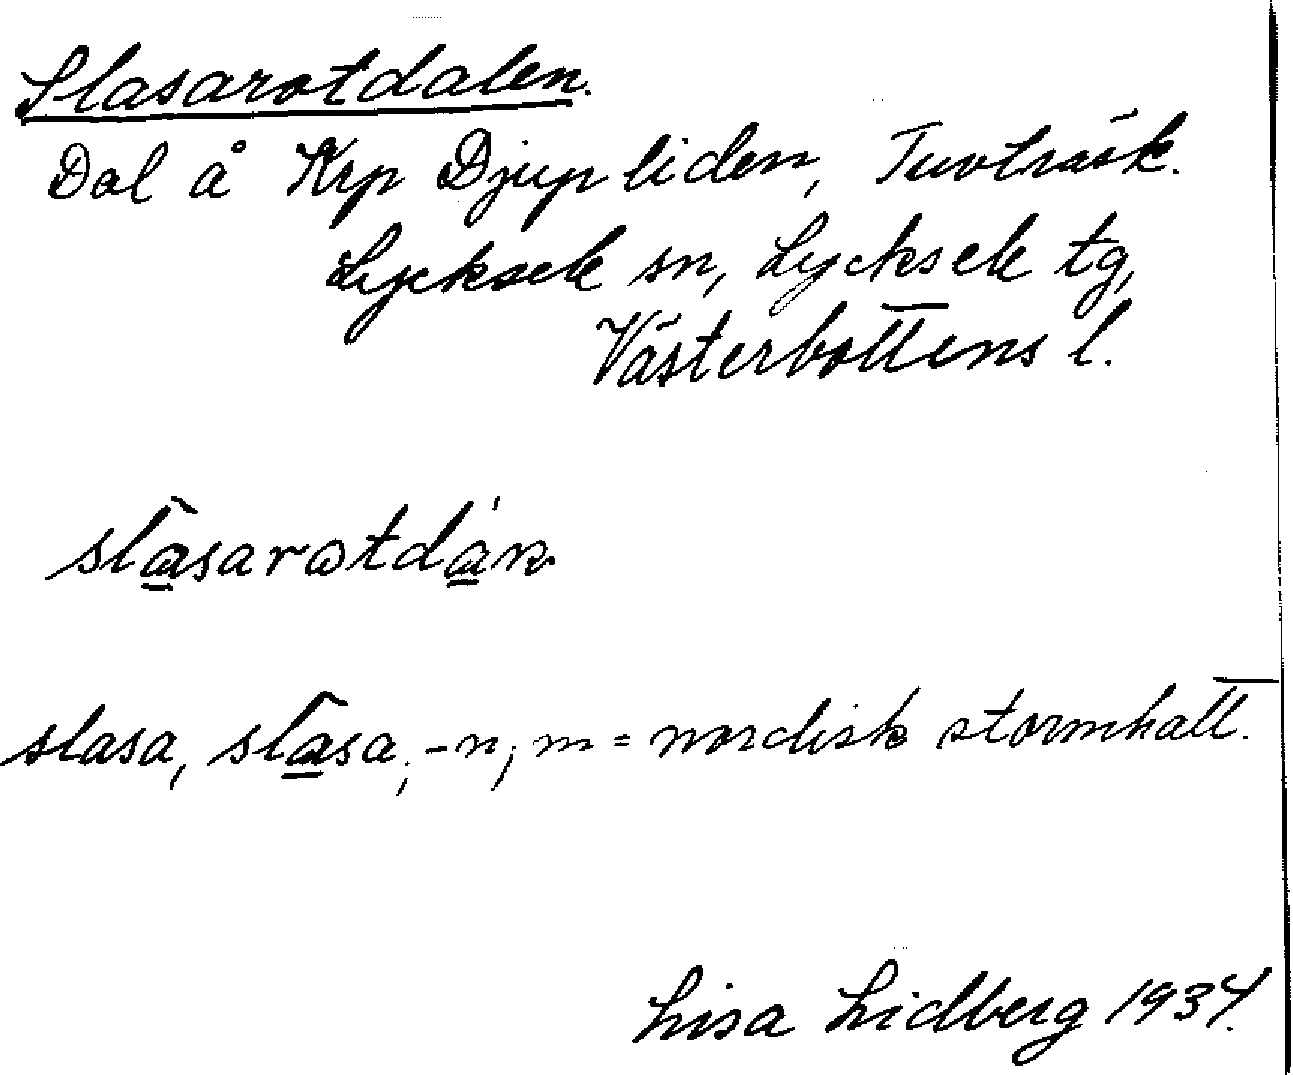 Slasarotdalen.
Dal å Krp Djupliden, Tuvträsk.
Lycksele sn, Lycksele tg,
Västerbottens l.
slasarotdán
slasa, slasa, -n, m = nordisk stormhatt.
Lisa Lidberg 1934.